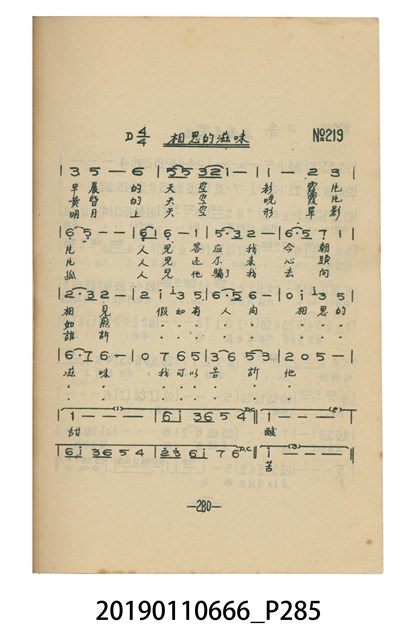 D 4/4 相思的滋味 №219
|3 5 — 6 |5 5 3 2 1 — |1 — 2 3|
早晨的天空 彩霞片
黄昏的天空 晚霞片
明月的上天空 形單影
|6 5 — — |6 1 6 — 1 |5 · 3 2 |6 · 5 7 1|
片 人兒答应我 今朝
片 人兒还不來
孤 人兒他騙了我 心去向
|2 · 3 2 — |2 i i 3 5 |6 · 5 6 — |0 i i 3 5|
相見 假如有人问 相思的
如願
誰訴
|6 · 7 6 — |0 7 6 5 |3 6 5 3 |2 0 5 —|
滋味 我可以告訴他
|1 — — — |6 i 3 6 5 4 D.C. ‖ i — — —|
甜 酸
|6 i 3 6 5 4 |2 3 6 i 7 6 D.C. ‖ i — — — ‖
苦
—280—
20190110666_P285